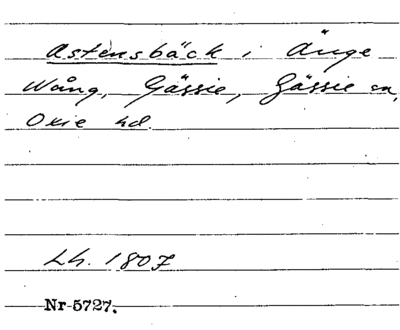 Astensbäck i Änge
Wång, Gässie, Gässie sn,
Oxie hd.
Lh. 1807
Nr 5727.